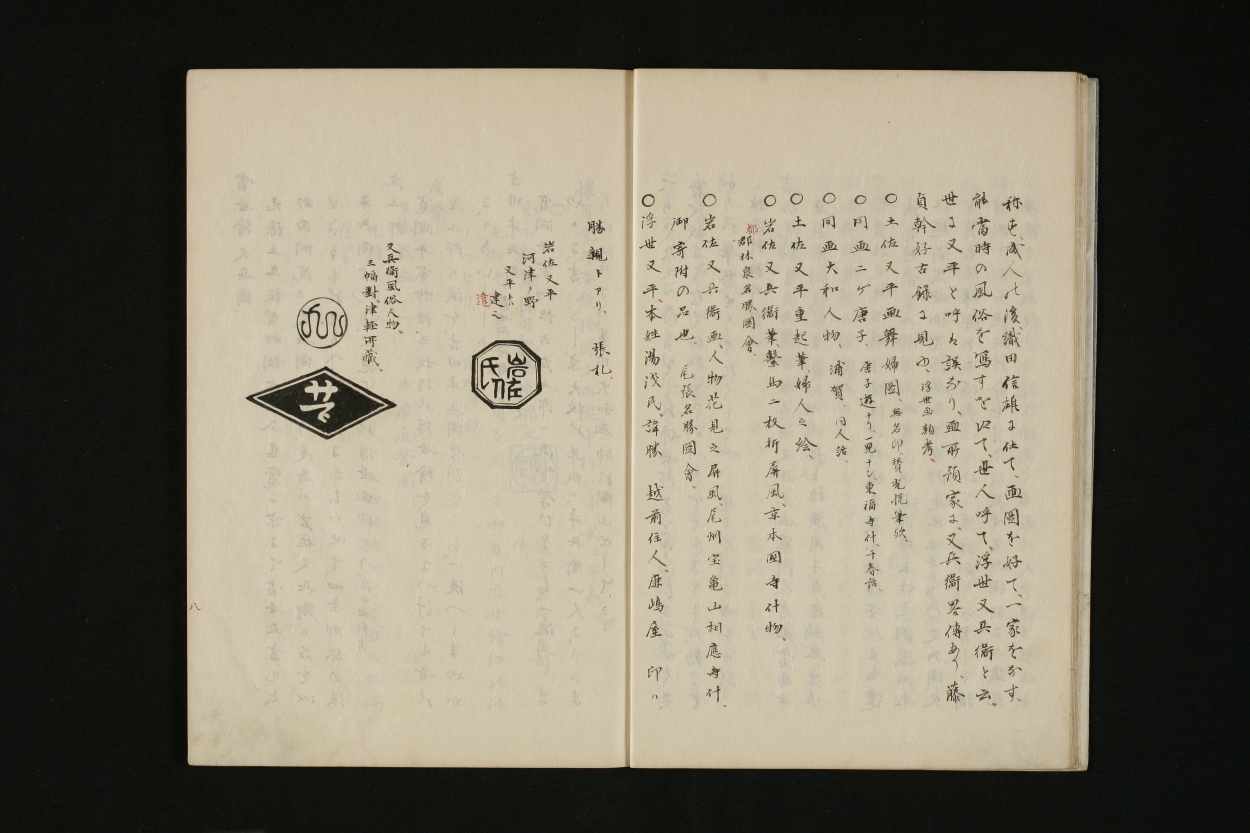 称す成人の後、織田信雄に仕て、画図を好て、一家をなす、
能当時の風俗を写すを以て、世人呼て、浮世又兵衛と云、
世に又平と呼は誤なり、画所預家に、又兵衛畧傳あり、藤
貞幹好古録に見ゆ、浮世画類考、
○土佐又平画舞婦図、無名印賛光悦筆欤、
○同画二ゲ唐子、唐子遊ナリ、一見ナシ、東福寺什、千春話、
○同画大和人物、浦賀、同人話、
○土佐又平重起筆、婦人之絵、
○岩佐又兵衛筆繋馬二枚折屏風、京本圀寺什物、
都
郡林泉名勝圖會
○岩佐又兵衛画、人物花見之屏風、尾州宝亀山相應寺什、
御寄附の品也 尾張名勝圖會、
○浮世又平、本姓湯浅氏、諱勝 越前住人 嶋屋 印ハ
勝親トアリ、張札
岩佐又平
河津ノ野
又平
建之
遠
岩佐氏
又兵衛風俗人物、
三幅對、津軽所藏、
八